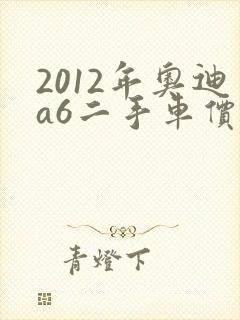 2012年奧迪
a6二手車價
青燈下